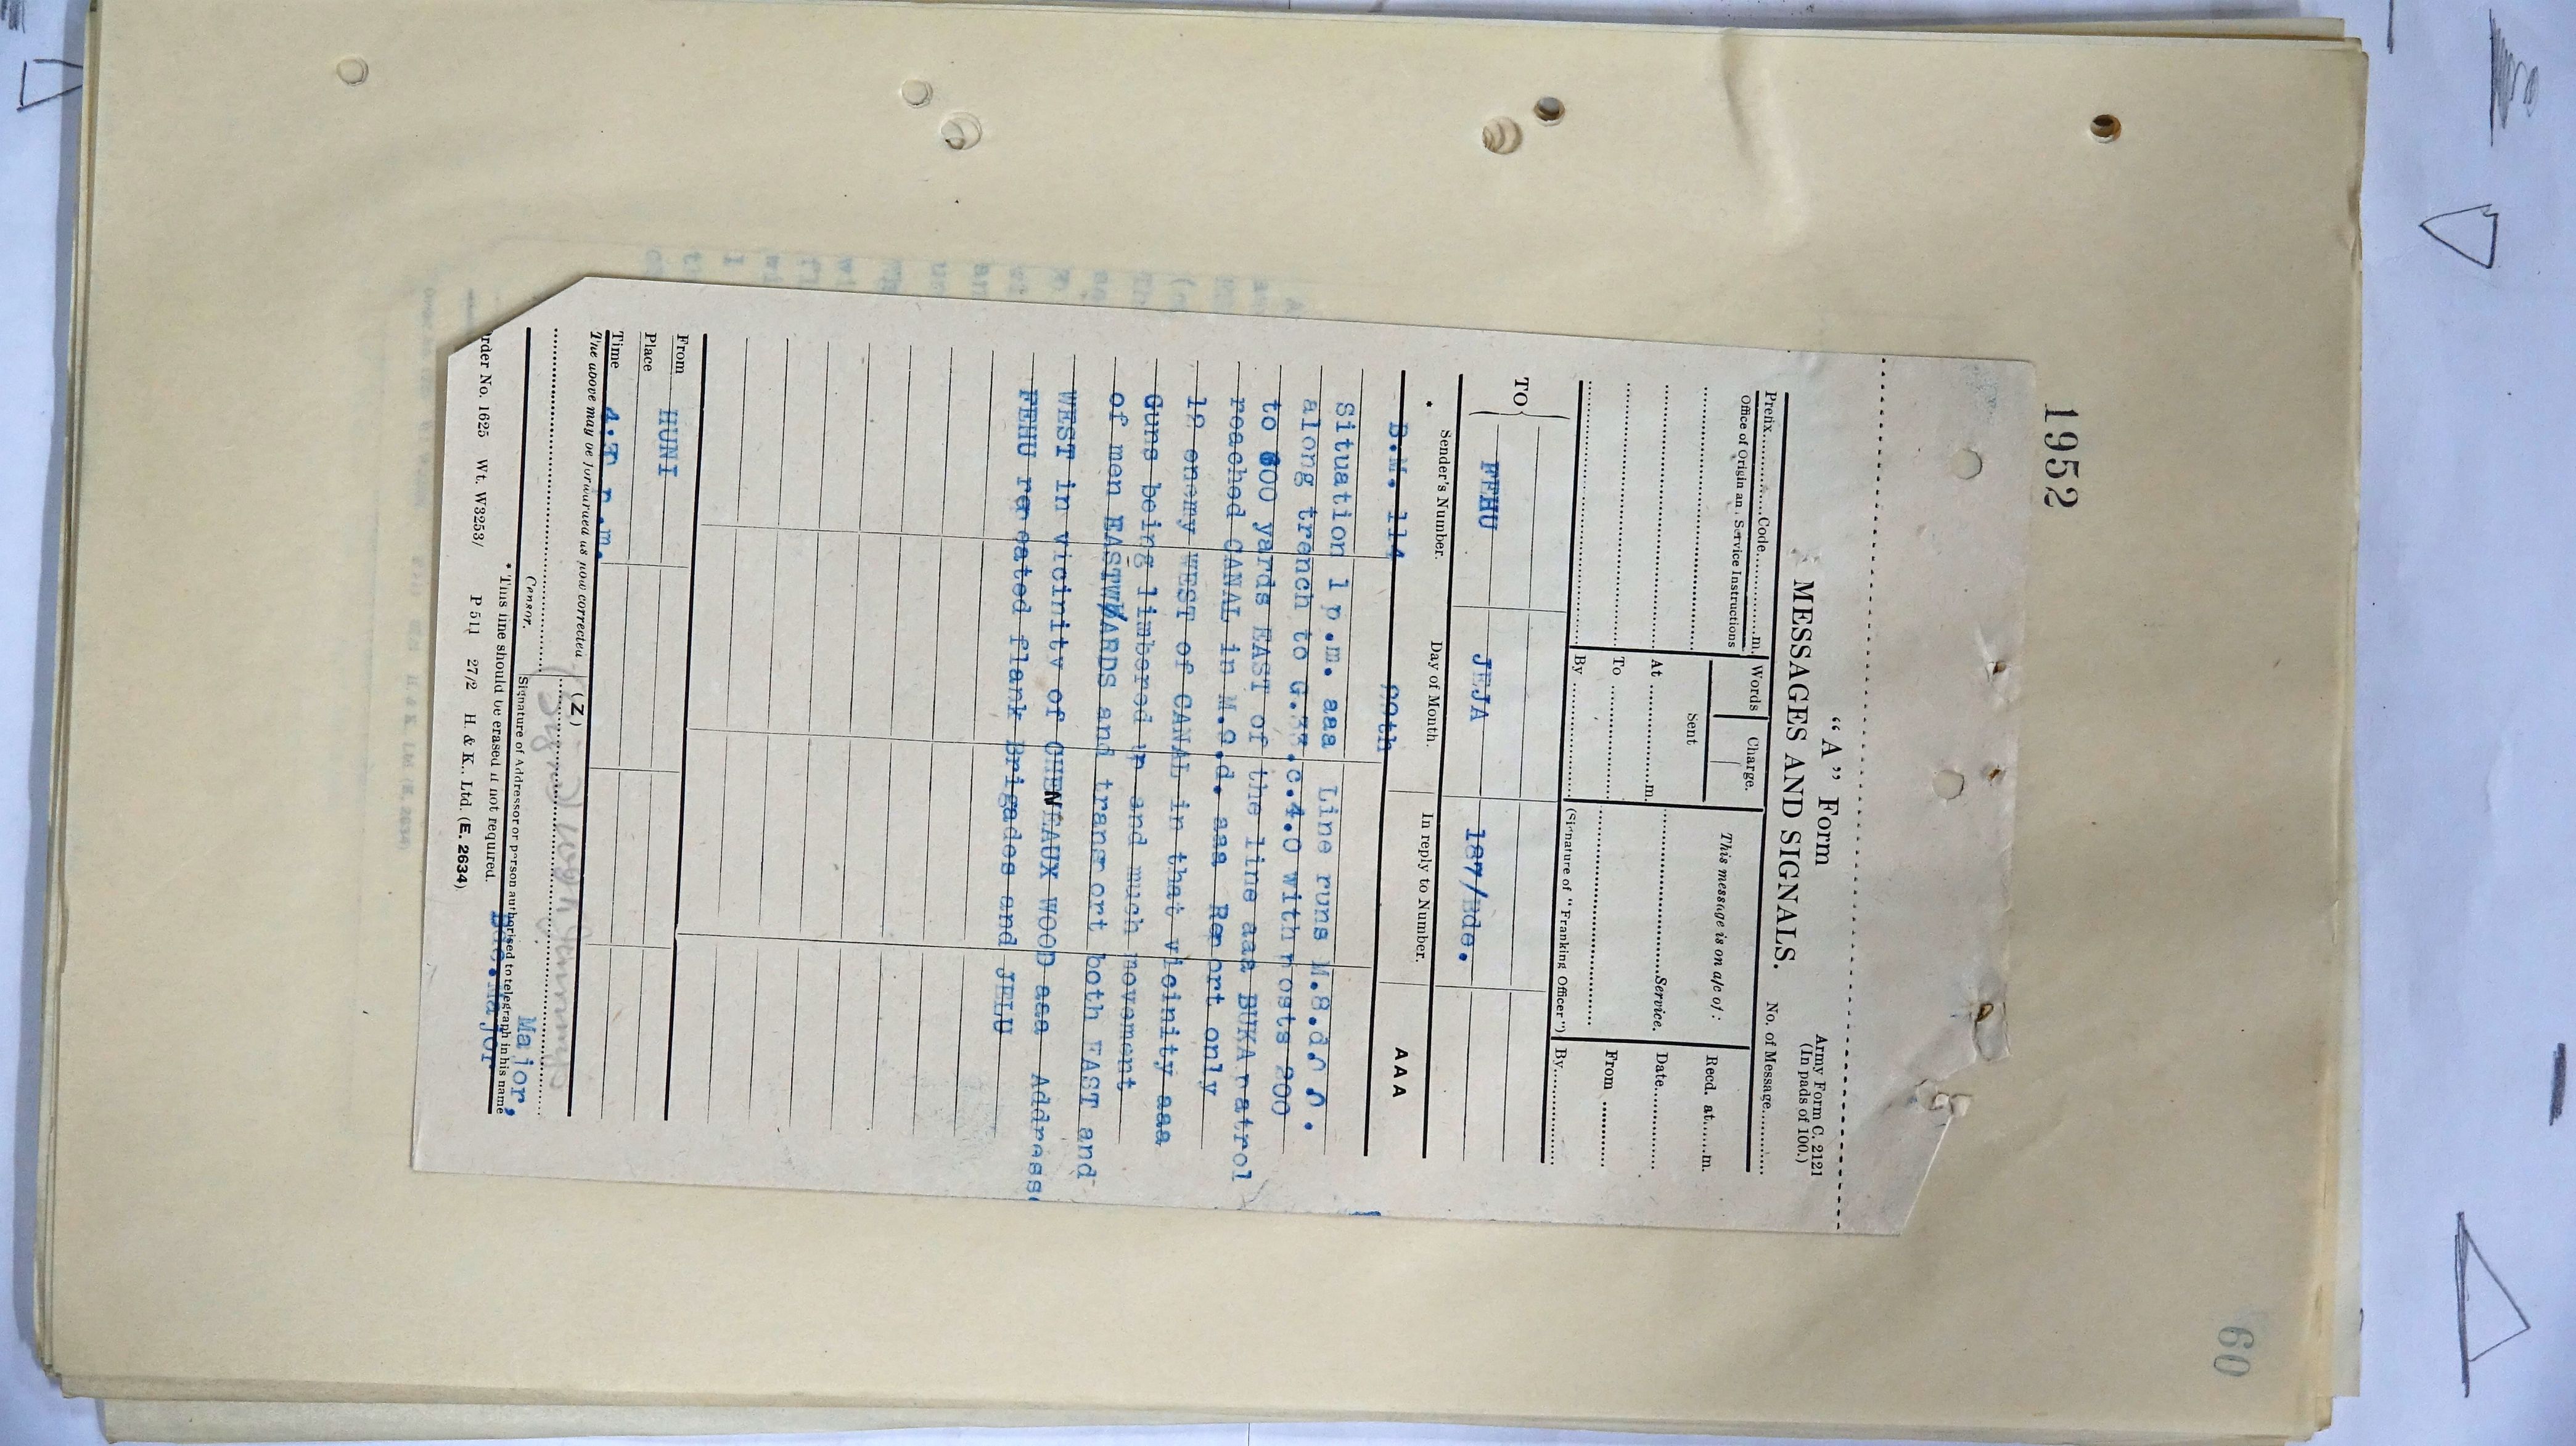 1952
60
"A" Form
MESSAGES AND SIGNALS.
Army Form C. 2121
(In pads of 100.)
No. of Message............
Prefix............Code............m.
Office of Origin and Service Instructions
Words
Charge.
Sent
At ............m.
To ............
By ............
This message is on a/c of :
............Service.
(Signature of "Franking Officer")
Recd. at......m.
Date............
From ............
By............
TO
FEHU
JEJA
187/Bde.
Sender's Number.
Day of Month.
In reply to Number.
AAA
B.M. 114
29th
Situation 1 p.m. aaa Line runs M.8.d.0.0.
along trench to G.33.c.4.0 with posts 200
to 600 yards EAST of the line aaa BUKA patrol
reached CANAL in M.9.d. aaa Report only
12 enemy WEST of CANAL in that vicinity aaa
Guns being limbered up and much movement
of men EASTWARDS and transport both EAST and
WEST in vicinity of CHENEAUX WOOD aaa Address
FEHU repeated flank Brigades and JELU
From
HUNI
Place
Time
p.m.
The above may be forwarded as now corrected
(Z)
Censor.
Signature of Addressor or person authorised to telegraph in his name
Major,
Bde.Major
* This line should be erased if not required.
rder No. 1625 Wt. W3253/ P 511 27/2 H. & K., Ltd. (E. 2634)